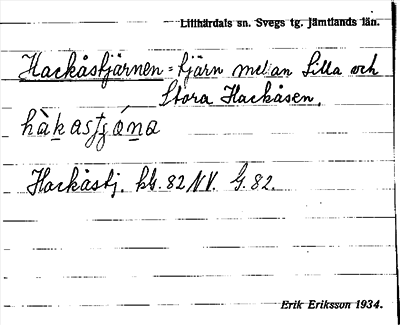 Lillhärdals sn. Svegs tg. Jämtlands län.
Hackåstjärnen = tjärn mellan Lilla och
Stora Hackåsen.
Hackåstj. kb. 82 NV. G. 82.
Erik Eriksson 1934.